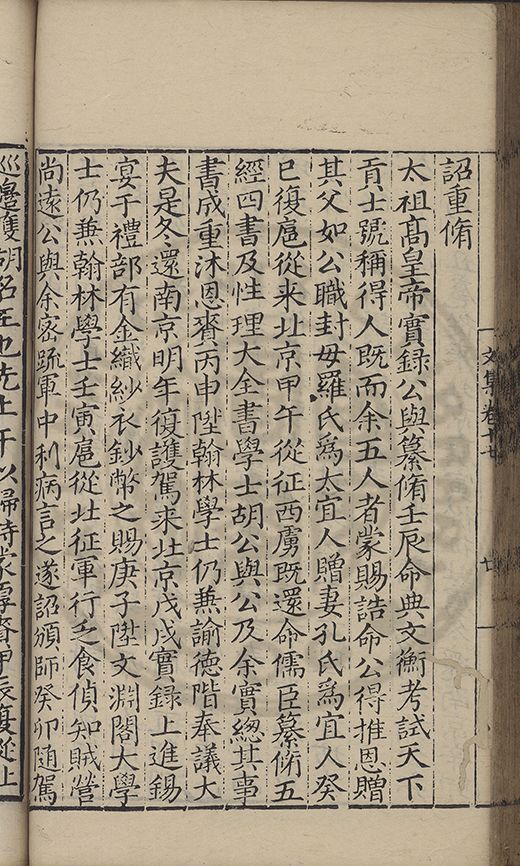 文集卷十七
廿
詔重脩
太祖髙皇帝實録公與纂脩壬辰命典文衡考試天下
貢士號稱得人既而余五人者蒙賜誥命公得推恩贈
其父如公職封毋羅氏爲太宜人贈妻孔氏爲宜人癸
巳復扈從来北京甲午從征西虜既還命儒臣纂脩五
經四書及性理大全書學士胡公與公及余實總其事
書成重沐恩賚丙申陞翰林學士仍兼諭徳階奉議大
夫是冬還南京明年復護駕来北京戊戌實録上進錫
宴于禮部有金織紗衣鈔幣之賜庚子陞文淵閣大學
士仍兼翰林學士壬寅扈從北征軍行乏食偵知賊營
尚遠公與余宻疏軍中利病言之遂詔頒師癸卯随駕
巡邊𫉬胡名王也先土干以歸特蒙厚賚甲辰復從上